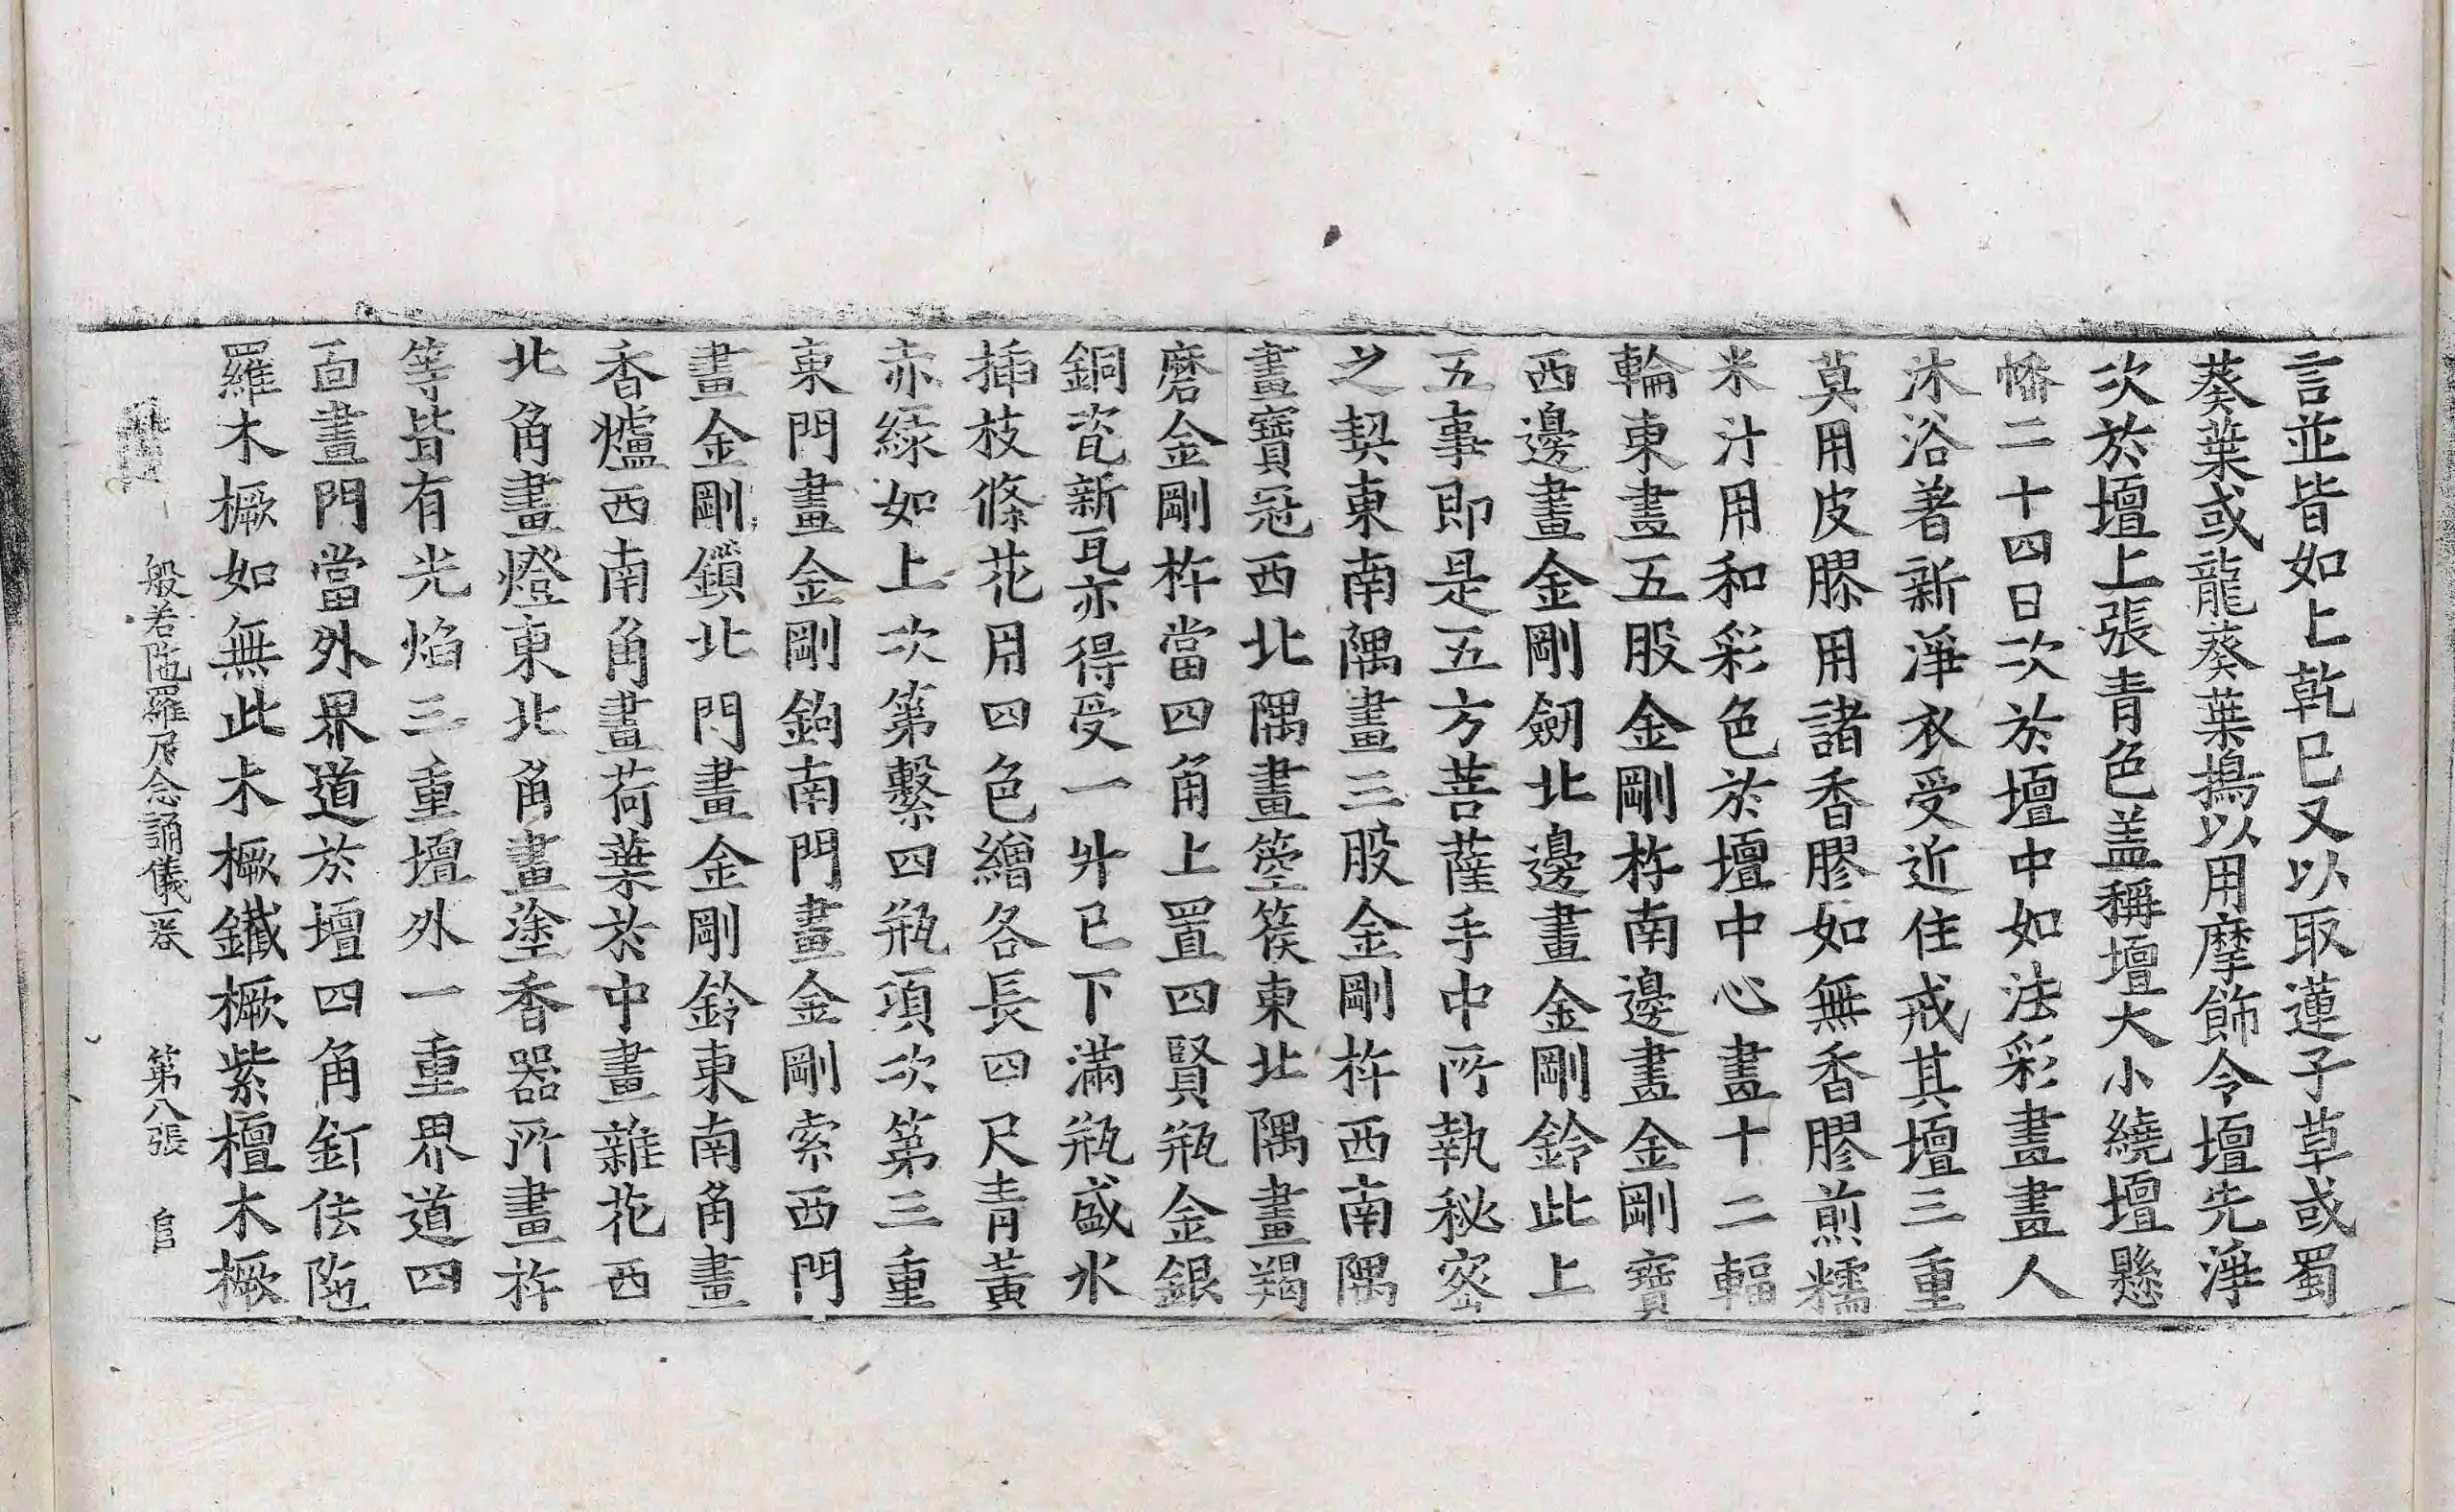 言並皆如上乾已又以取蓮子草或蜀
葵葉或龍葵葉擣以用摩飾令壇先淨
次於壇上張青色盖稱壇大小繞壇懸
幡二十四日次於壇中如法彩畫畫人
沐浴著新淨衣受近住戒其壇三重
莫用皮膠用諸香膠如無香膠煎糯
米汁用和彩色於壇中心畫十二輻
輪東畫五股金剛杵南邊畫金剛寶
西邊畫金剛劒北邊畫金剛鈴此上
五事即是五方菩薩手中所執秘密
之契東南隅畫三股金剛杵西南隅
畫寶冠西北隅畫箜篌東北隅畫羯
磨金剛杵當四角上置四賢瓶金銀
銅瓷新瓦亦得受一升已下滿瓶盛水
揷枝條花用四色繒各長四尺青黃
赤綠如上次第繫四瓶項次第三重
東門畫金剛鉤南門畫金剛索西門
畫金剛鎖北門畫金剛鈴東南角畫
香爐西南角畫荷葉於中畫雜花西
北角畫燈東北角畫塗香器所畫杵
等皆有光焰三重壇外一重界道四
面畫門當外界道於壇四角釘佉陁
羅木橛如無此木橛鐵橛紫檀木橛
般若陁羅尼念誦儀一卷 第八張